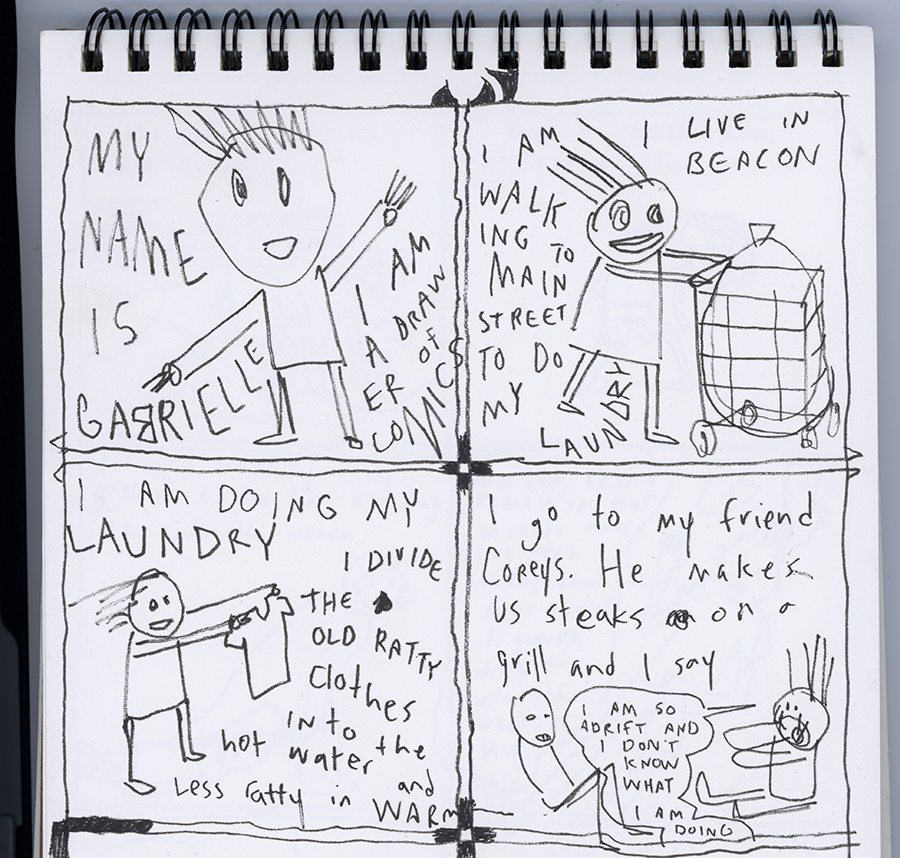 MY
NAME
IS
GABRIELLE
I AM
A DRAW
ER OF
COMICS
I LIVE IN
BEACON
I AM
WALK
ING TO
MAIN
STREET
TO DO
MY
LAUNDRY
I AM DOING MY
LAUNDRY
I DIVIDE
THE
OLD RATTY
Clothes
in to
hot water the
Less ratty in and
WARM
I go to my friend
Coreys. He makes
us steaks on a
grill and I say
I AM SO
ADRIFT AND
I DON'T
KNOW
WHAT
I AM
DOING